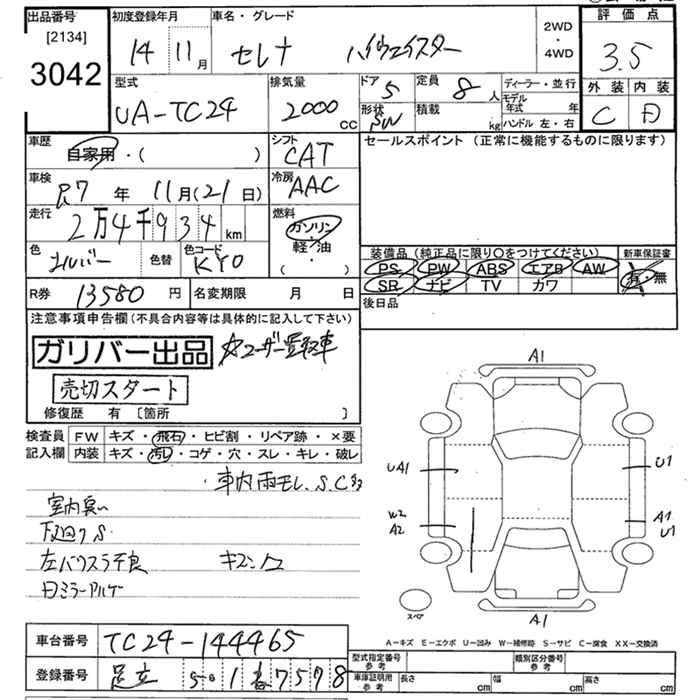 出品番号 初度登録年月 車名・グレード 2WD・4WD 評価点
[2134]
3042
14 11月 セレナ ハイウェイスター 3.5
型式 排気量 ドア 5 定員 8人 ディーラー・並行 外装 内装
UA-TC24 2000cc 形状 SW 積載 kg モデル年式 年 ハンドル 左・右 C D
車歴 自家用・( ) シフト CAT セールスポイント (正常に機能するものに限ります)
車検 R7年 11月(21日) 冷房 AAC
走行 2万4千934km 燃料 ガソリン・軽油・( )
色 シルバー 色替 色コード KY0
装備品 (純正品に限り〇をつけてください) 新車保証書
PS PW ABS エアB AW 有・無
SR ナビ TV カワ
R券 13580円 名変期限 月 日 後日品
注意事項申告欄(不具合内容等は具体的に記入して下さい)
ガリバー出品 ☆ユーザー買取車
売切スタート
修復歴 有 [箇所 ]
検査員 FW キズ・飛石・ヒビ割・リペア跡・×要
記入欄 内装 キズ・汚レ・コゲ・穴・スレ・キレ・破レ
・車内雨モレ、S.C
室内臭い
下回りS
左パワスラ不良 キズ
ミラー
A1
UA1 U1
W2 A2 A1 U1
スペア A1
A-キズ E-エクボ U-凹み W-補修跡 S-サビ C-腐食 XX-交換済
車台番号 TC24-144465
型式指定番号 参考 類別区分番号 参考
登録番号 足立 50 1 7578
車庫証明用 参考 長さ cm 幅 cm 高さ cm